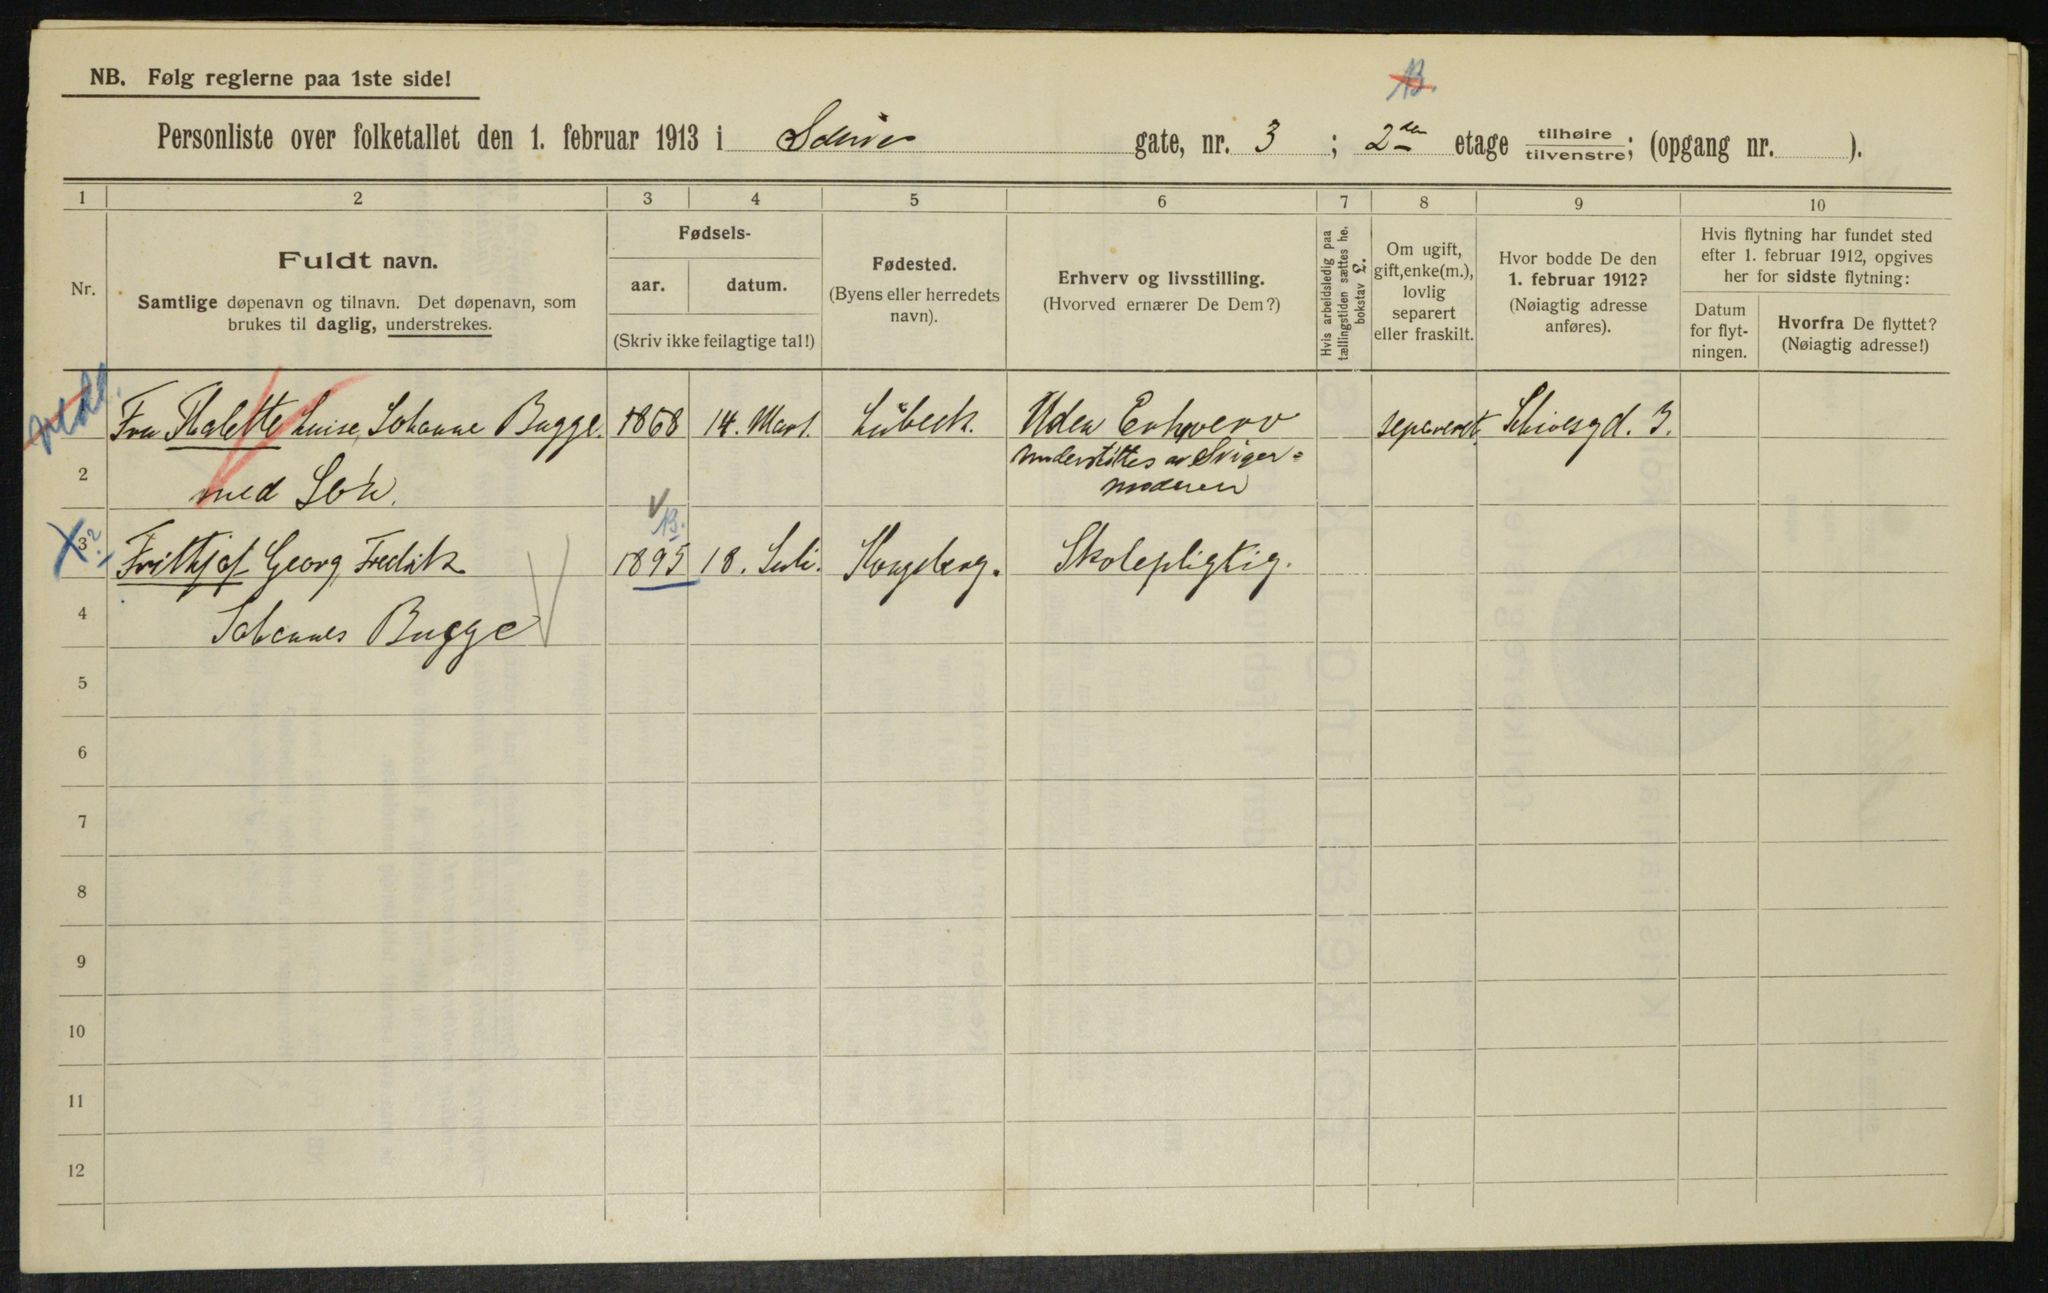 NB. Følg reglerne paa 1ste side!
Personliste over folketallet den 1. februar 1913 i Schives gate, nr. 3 ; 2den etage tilhøire/tilvenstre; (opgang nr. ).
1 2 3 4 5 6 7 8 9 10
Nr.
Fuldt navn.
Samtlige døpenavn og tilnavn. Det døpenavn, som
brukes til daglig, understrekes.
Fødsels-
aar. datum.
(Skriv ikke feilagtige tal!)
Fødested.
(Byens eller herredets
navn).
Erhverv og livsstilling.
(Hvorved ernærer De Dem?)
Hvis arbeidsledig paa
tællingstiden sættes he.
bokstav L.
Om ugift,
gift, enke(m.),
lovlig
separert
eller fraskilt.
Hvor bodde De den
1. februar 1912?
(Nøiagtig adresse
anføres).
Hvis flytning har fundet sted
efter 1. februar 1912, opgives
her for sidste flytning:
Datum
for flyt-
ningen.
Hvorfra De flyttet?
(Nøiagtig adresse!)
Fru Luise, Johanne Bugge. 1868 14. Mart. Lübeck. Uden Erhverv separeret. Schivesgd. 3.
understøttes av Sviger=
2 med Søn. moderen
3 Frithjof Georg, Fredrik 1895 18. Juli. Kongsberg. Skolepligtig.
4 Johannes Bugge
5
6
7
8
9
10
11
12